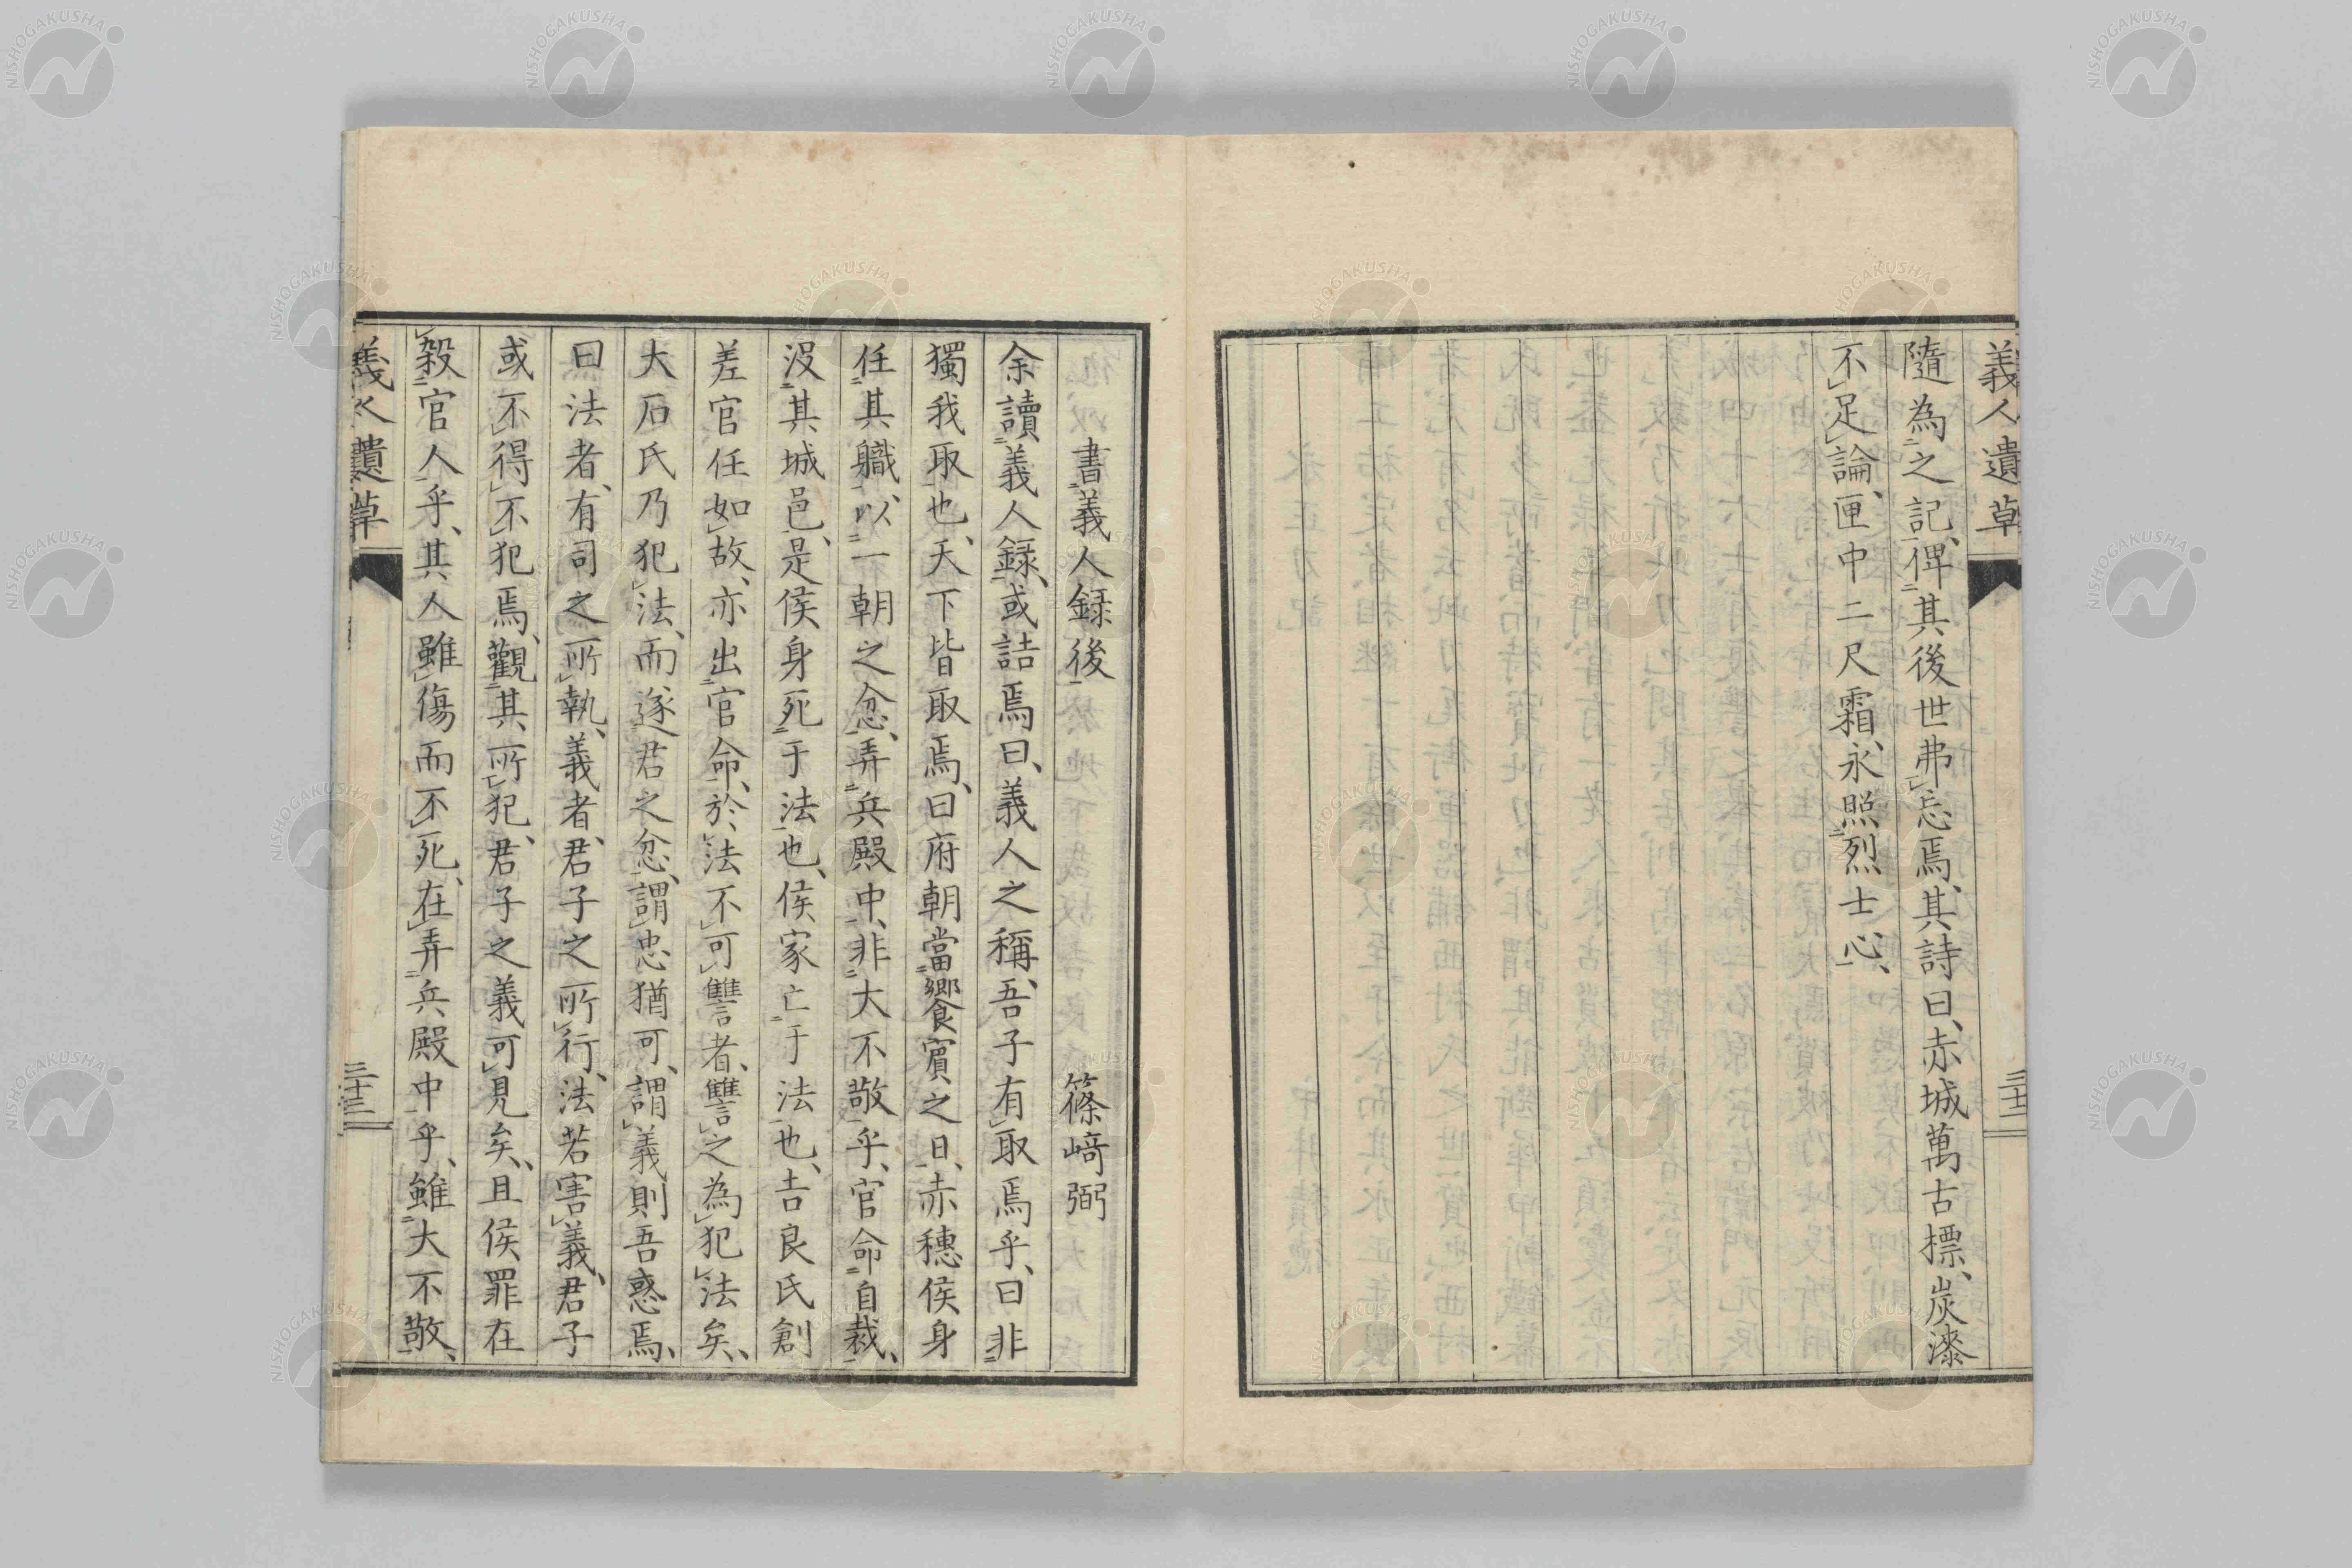 義人遺草
三十二
隨為之記、俾其後世弗忘焉、其詩曰、赤城萬古標、炭漆
不足論、匣中二尺霜、永照烈士心、
書義人録後　篠﨑弼
余讀義人録、或詰焉曰、義人之稱、吾子有取焉乎、曰非
獨我取也、天下皆取焉、曰府朝當饗賓之日、赤穗侯身
任其職、以一朝之忿、弄兵殿中、非大不敬乎、官命自裁、
沒其城邑、是侯身死于法也、侯家亡于法也、吉良氏創
差官任如故、亦出官命、於法不可讐者、讐之為犯法矣、
大石氏乃犯法、而遂君之忿、謂忠猶可、謂義則吾惑焉、
曰法者、有司之所執、義者、君子之所行、法若害義、君子
或不得不犯焉、觀其所犯、君子之義可見矣、且侯罪在
殺官人乎、其人雖傷而不死、在弄兵殿中乎、雖大不敬、
義人遺草
三十三
NISHOGAKUSHA